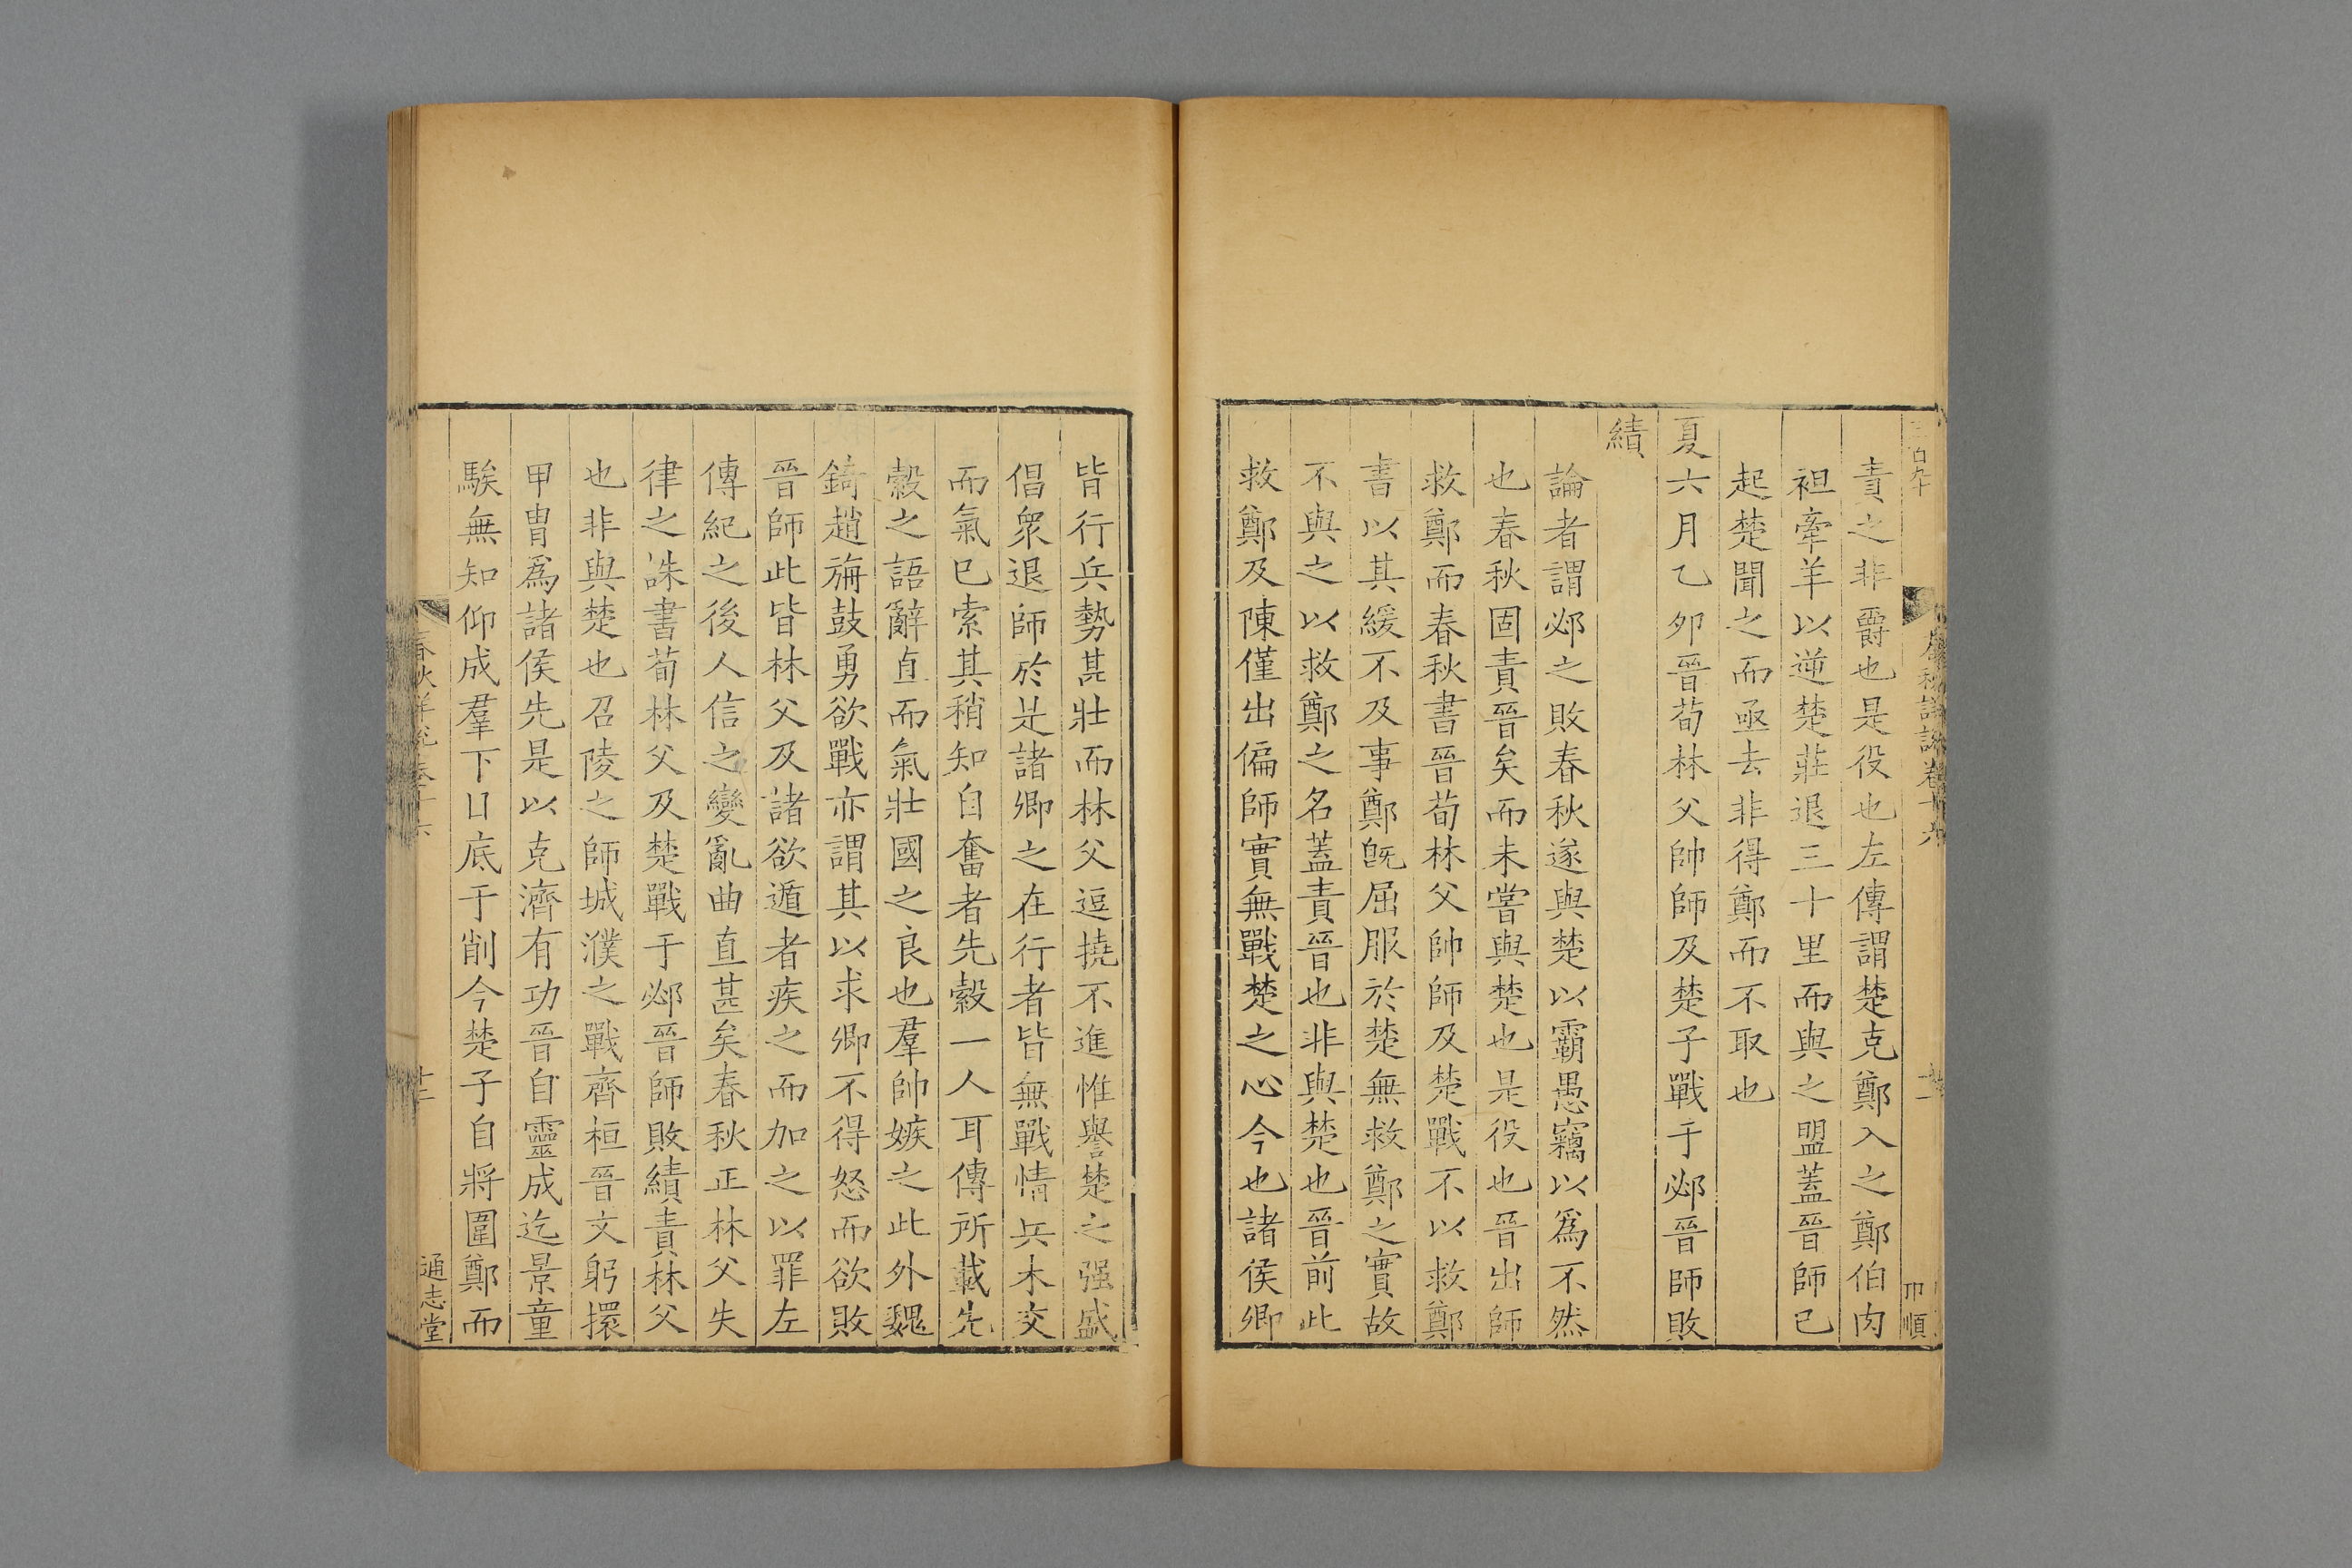 春秋詳說卷十六
責之非爵也是役也左傳謂楚克鄭入之鄭伯肉
袒牽羊以逆楚莊退三十里而與之盟蓋晉師已
起楚聞之而亟去非得鄭而不取也
夏六月乙夘晉荀林父帥師及楚子戰于邲晉師敗
績
論者謂邲之敗春秋遂與楚以霸愚竊以爲不然
也春秋固責晉矣而未嘗與楚也是役也晉出師
救鄭而春秋書晉荀林父帥師及楚戰不以救鄭
書以其緩不及事鄭旣屈服於楚無救鄭之實故
不與之以救鄭之名蓋責晉也非與楚也晉前此
救鄭及陳僅出偏師實無戰楚之心今也諸侯卿
皆行兵勢甚壯而林父逗撓不進惟譽楚之强盛
倡衆退師於是諸卿之在行者皆無戰情兵未交
而氣已索其稍知自奮者先縠一人耳傳所載先
縠之語辭直而氣壯國之良也羣帥嫉之此外魏
錡趙旃鼓勇欲戰亦謂其以求卿不得怒而欲敗
晉師此皆林父及諸欲遁者疾之而加之以罪左
傳紀之後人信之變亂曲直甚矣春秋正林父失
律之誅書荀林父及楚戰于邲晉師敗績責林父
也非與楚也召陵之師城濮之戰齊桓晉文躬擐
甲胄爲諸侯先是以克濟有功晉自靈成迄景童
騃無知仰成羣下日底于削今楚子自將圍鄭而
春秋詳說卷十六
十二
通志堂